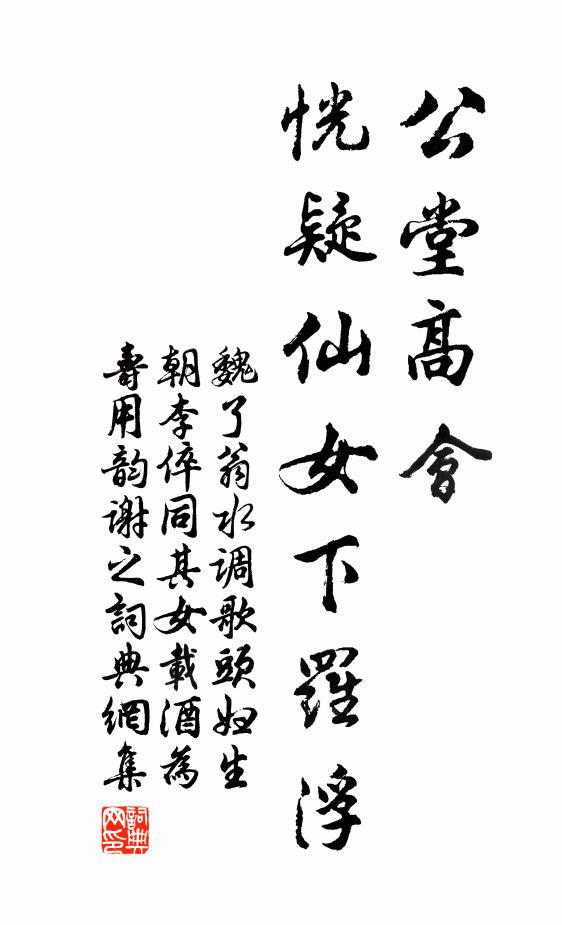 公堂高會
恍疑仙女下羅浮
魏了翁水调歌頭妇生
朝李倅同其女載酒為
壽用韵谢之詞典網集
詞典网印